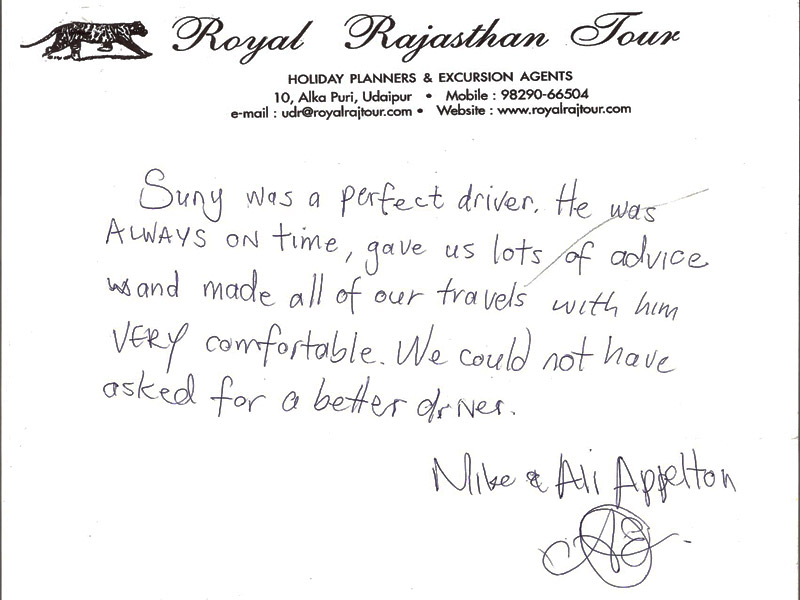 Royal Rajasthan Tour
HOLIDAY PLANNERS & EXCURSION AGENTS
10, Alka Puri, Udaipur • Mobile : 98290-66504
e-mail : udr@royalrajtour.com • Website : www.royalrajtour.com
Suny was a perfect driver. He was
ALWAYS ON time, gave us lots of advice
and made all of our travels with him
VERY comfortable. We could not have
asked for a better driver.
Mike & Ali Appelton